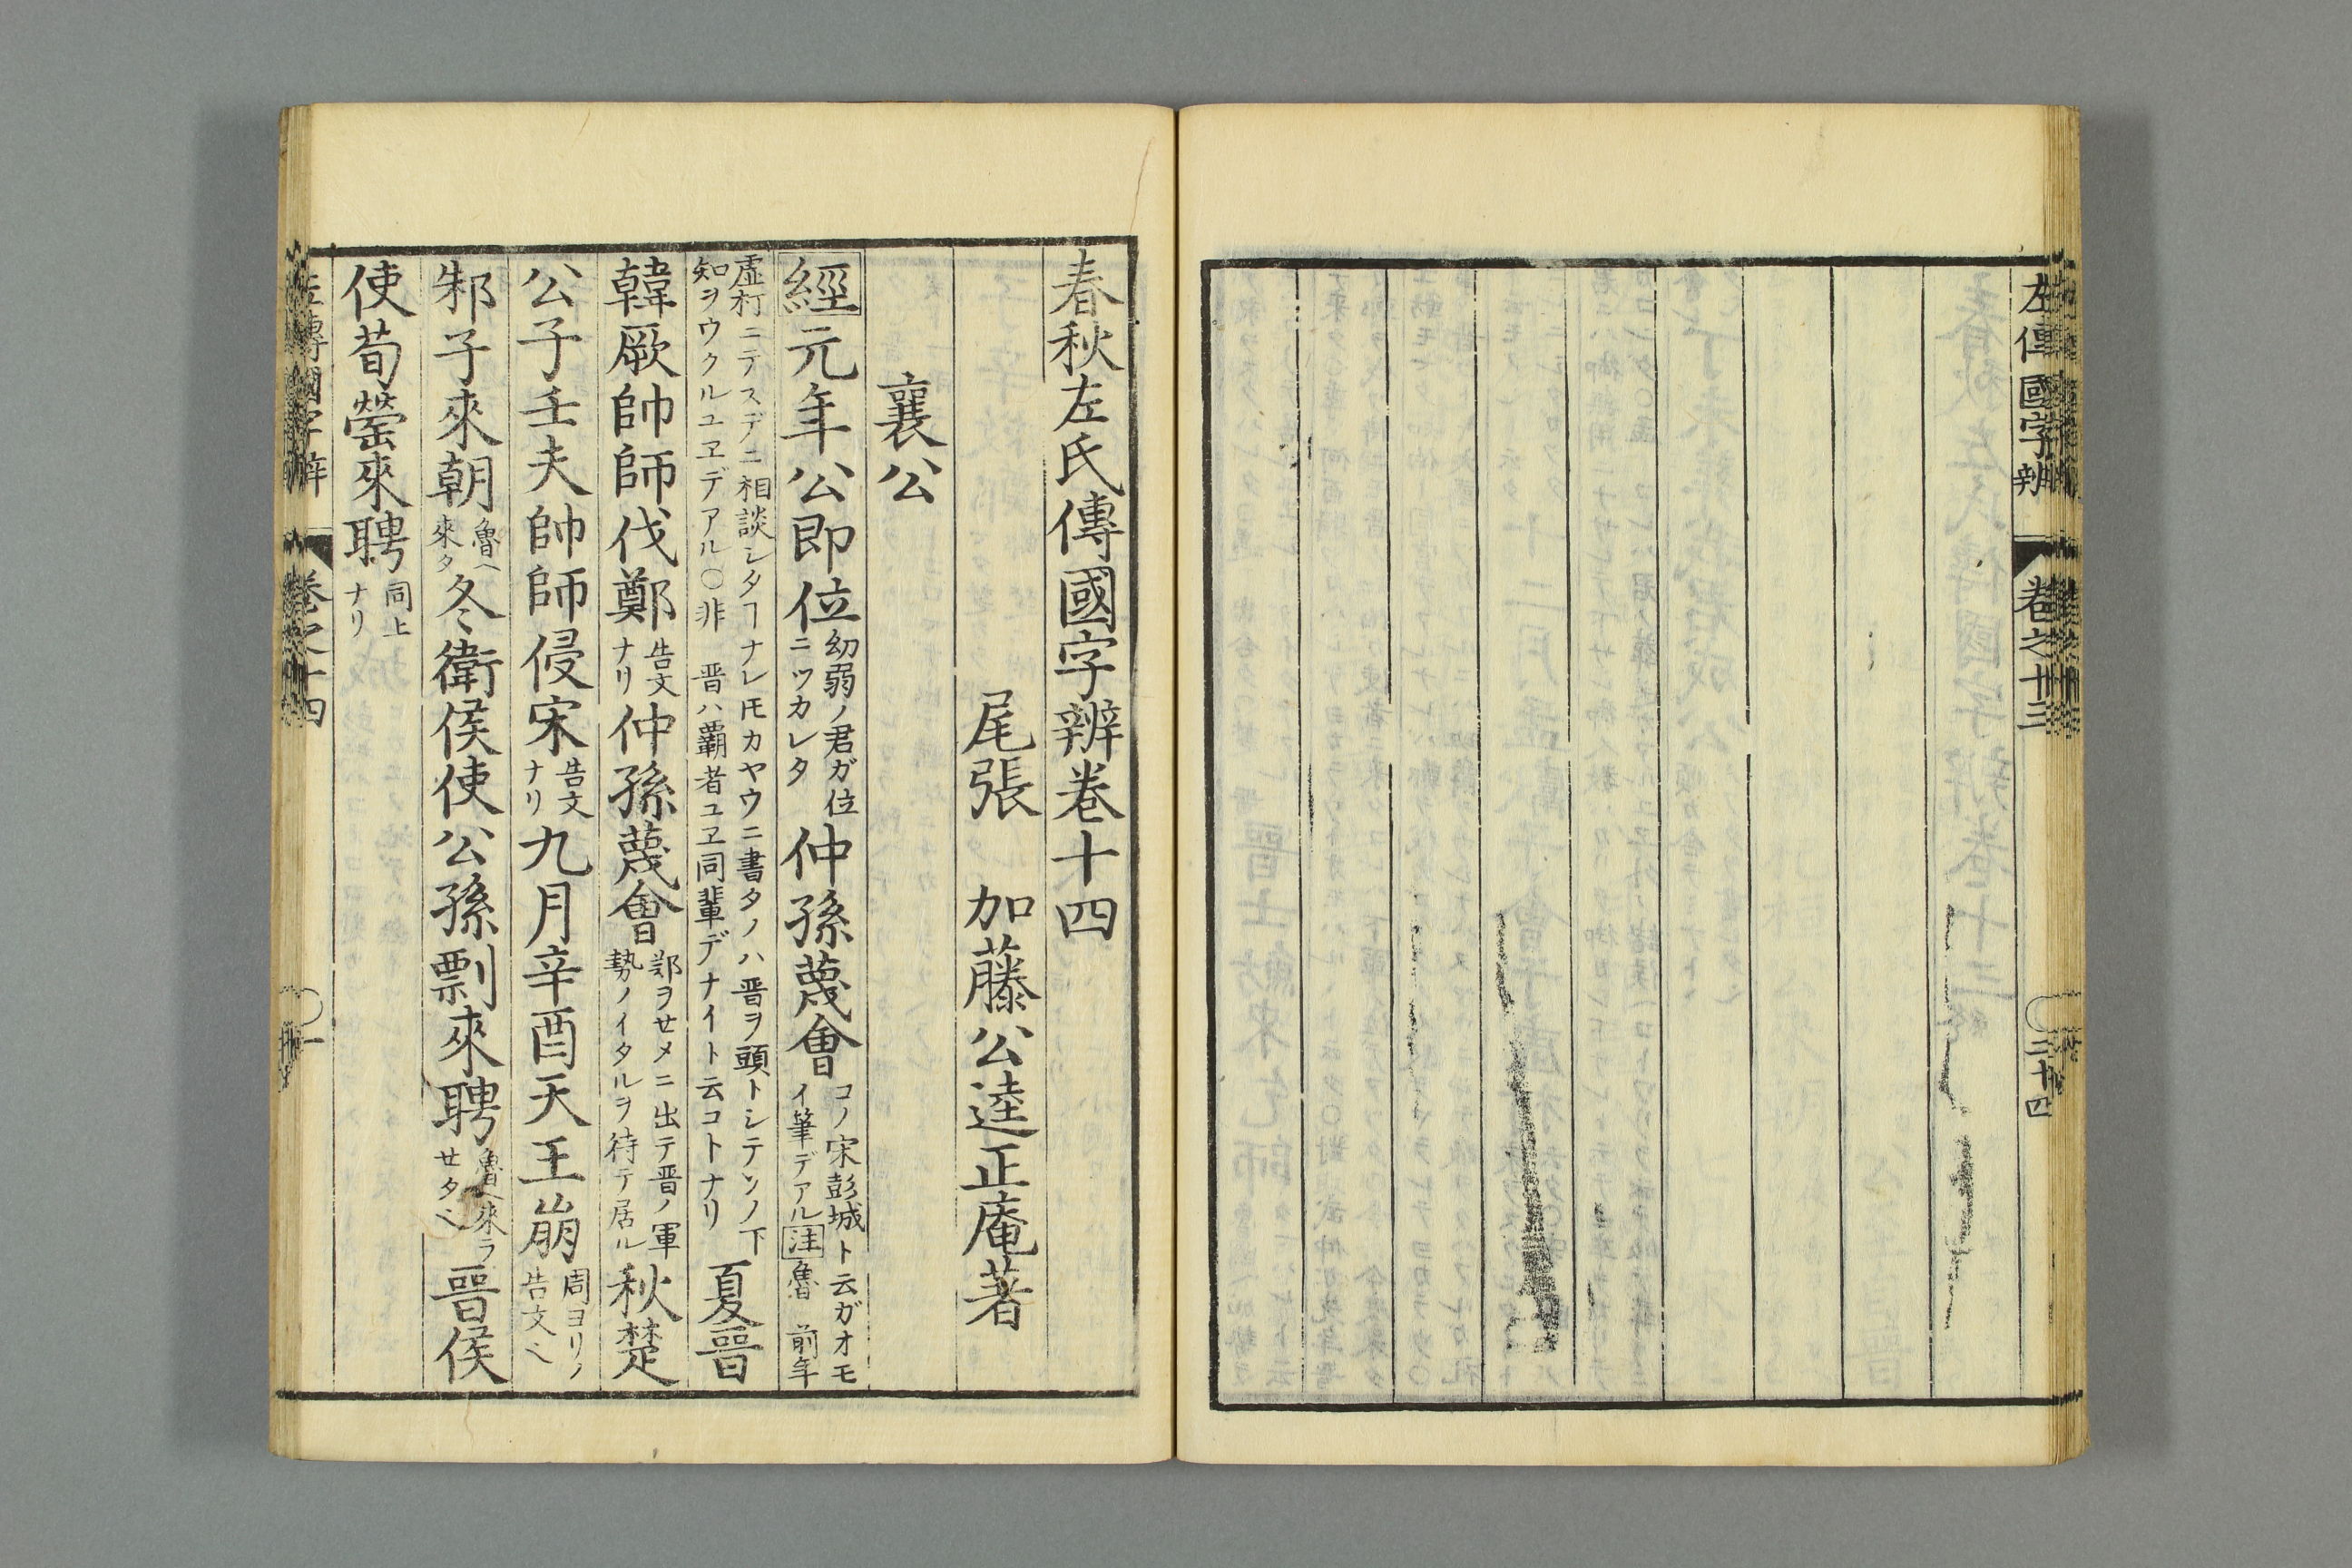 左傳國字辨 卷之十三 三十四
春秋左氏傳國字辨卷十四
尾張 加藤公逵正庵著
襄公
經元年公即位幼弱ノ君ガ位ニツカレタ仲孫蔑會コノ宋彭城ト云ガオモイ筆デアル注魯 前年
虛朾ニテスデニ相談シタヿナレ𪜈カヤウニ書タノハ晋ヲ頭トシテソノ下
知ヲウクルユヱデアル〇非 晋ハ覇者ユヱ同輩デナイト云コトナリ
夏晉
韓厥帥師伐鄭告文ナリ仲孫蔑會鄭ヲせメニ出テ晋ノ軍勢ノイタルヲ待テ居ル秋楚
公子壬夫帥師侵宋告文ナリ九月辛酉天王崩周ヨリノ告文也
邾子來朝魯ヘ來タ冬衛侯使公孫剽來聘魯ヘ來ラせタ也晉侯
使荀罃來聘同上ナリ
左傳國字辨 卷之十四 一